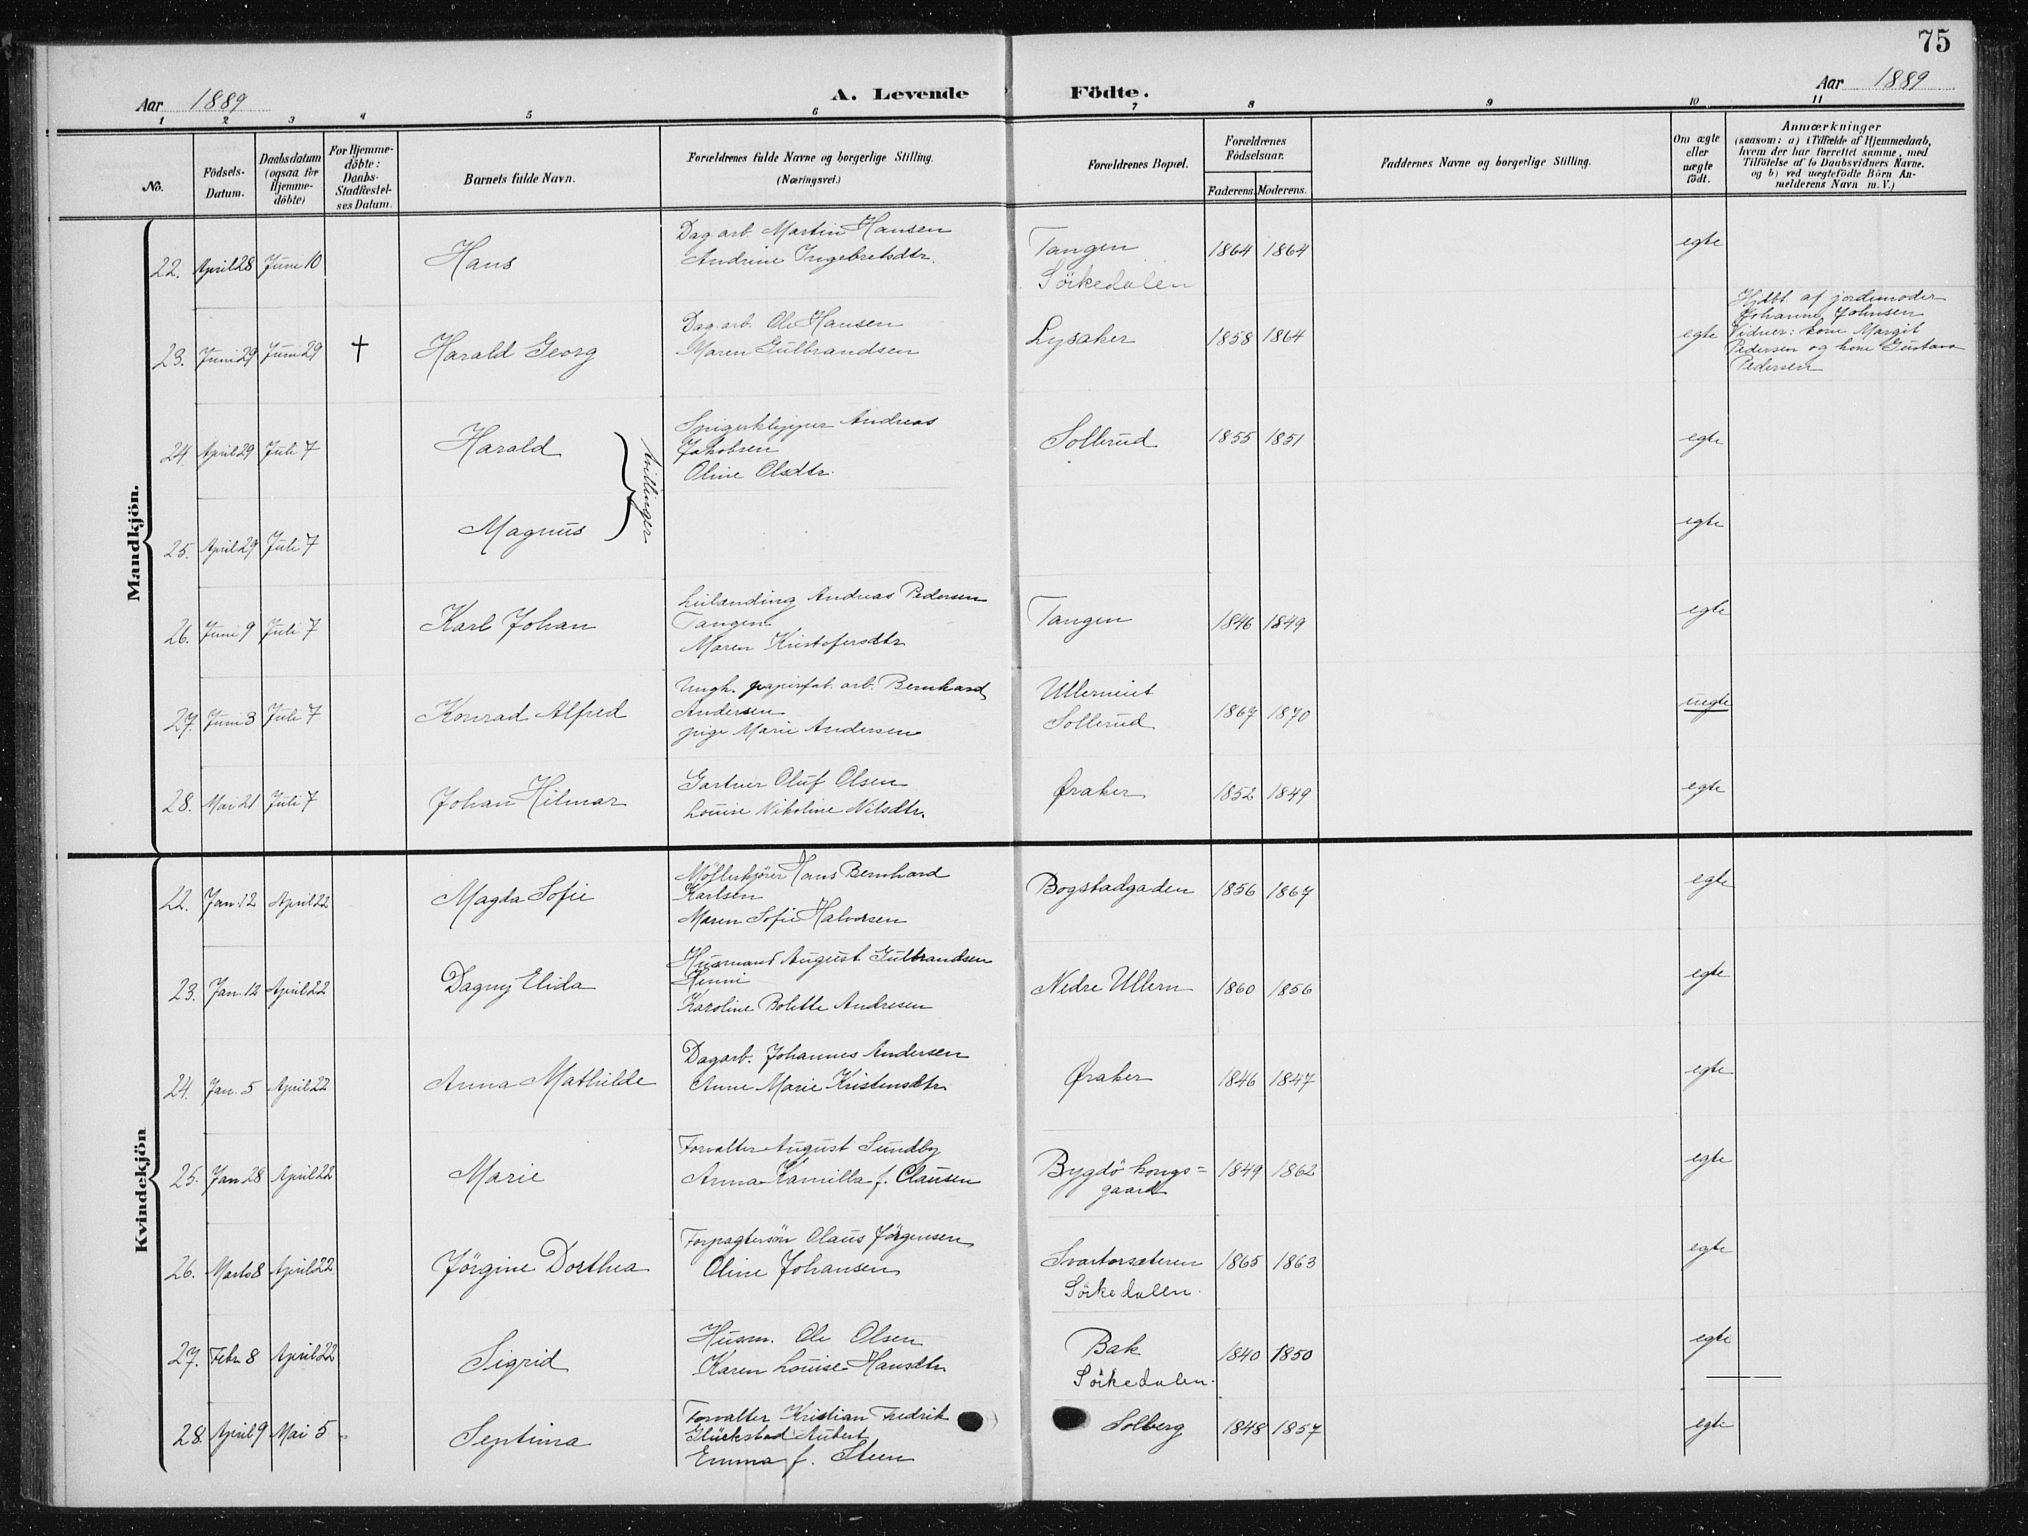 75
Aar 1889
A. Levende Födte.
Aar 1889
1 2 3 4 5 6 7 8 9 10 11
No.
Födsels-
Datum.
Daabsdatum
(ogsaa for
Hjemme-
döbte)
For Hjemme-
döbte:
Daabs-
Stadfestel-
ses Datum.
Barnets fulde Navn.
Forældrenes fulde Navne og borgerlige Stilling.
(Næringsvei.)
Forældrenes Bopæl.
Forældrenes
Födselsaar.
Faderens. Moderens.
Faddernes Navne og borgerlige Stilling.
Om ægte
eller
uægte
födt.
Anmærkninger
(saasom: a) i Tilfælde af Hjemmedaab,
hvem der har forrettet samme, med
Tilföielse af to Daabsvidners Navne.
og b) ved uægtefödte Börn An-
melderens Navn m. V.)
Mandkjön.
22. April 28 Juni 10 Hans
Dagarb. Martin Hansen
Andrine Ingebretsdtr.
Tangen
Sörkedalen
1864 1864 egte
23. Juni 29 Juni 29 † Harald Georg
Dag.arb. Ole Hansen
Maren Gulbrandsen
Lysaker 1858 1864 egte
Hjdbt. af jordemoder
Johanne Johnsen
Vidner: kone Margit
Pedersen og kone Gustava
Pedersen
24. April 29 Juli 7 Harald
Spigerklipper Andreas
Jakobsen
Oline Olsdtr.
Sollerud 1855 1851 egte
Tvillinger
25. April 29 Juli 7 Magnus egte
26. Juni 9 Juli 7 Karl Johan
Leilænding Andreas Pedersen
Tangen
Maren Kristofersdtr
Tangen 1846 1849 egte
27. Juni 3 Juli 7 Konrad Alfred
Ungk. papirfab. arb. Bernhard
Andersen
pige Marie Andersen
Ullern
Sollerud
1867 1870 uegte
28. Mai 21 Juli 7 Johan Hilmar
Gartner Oluf Olsen
Louise Nikoline Nilsdtr.
Øraker 1852 1849 egte
Kvindekjön
22. Jan 12 April 22 Magda Sofie
Möllerkjører Hans Bernhard
Karlsen
Maren Sofie Halvorsen
Bogstadgaden 1856 1867 egte
23. Jan. 12 April 22 Dagny Elida
Husmand August Gulbrandsen
Henni
Karoline Bolette Andresen
Nedre Ullern 1860 1856 egte
24. Jan. 5 April 22 Anna Mathilde
Dagarb. Johannes Andersen
Anne Marie Kristensdtr
Øraker 1846 1847 egte
25. Jan 28 April 22 Marie
Forvalter August Sundby
Anna Kamilla f. Clausen
Bygdö kongs=
gaard
1849 1862 egte
26. Marts 8 April 22 Jörgine Dorthea
Forpagtersön Claus Jörgensen
Oline Johansen
Svartorsæteren
Sörkedalen.
1865 1863 egte
27. Febr 8 April 22 Sigrid
Husm. Ole Olsen
Karen Louise Hansdtr
Bak
Sörkedalen.
1840 1850 egte
28. April 9 Mai 5 Septima
Forvalter Kristian Fredrik
Glückstad Aubert
Emma f. Steen
Solberg 1848 1857 egte